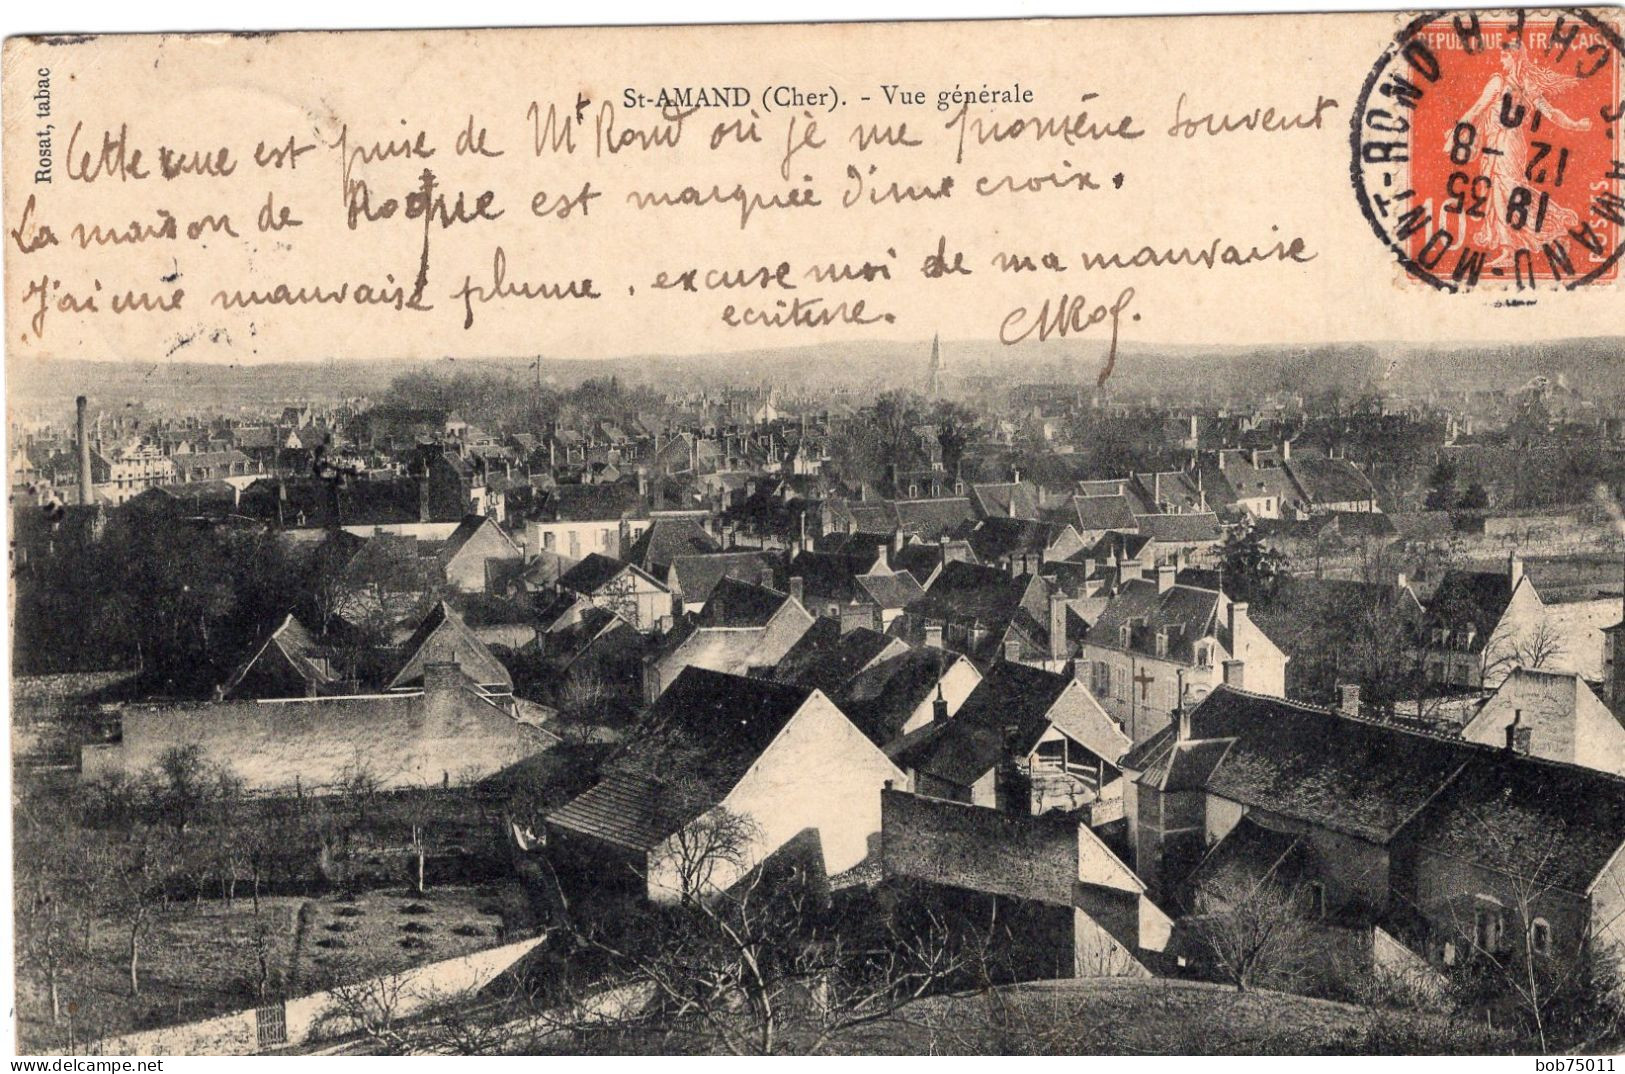 Rosat, tabac
St-AMAND (Cher). - Vue générale
Cette vue est prise de Mt Rond où je me promène souvent
La maison de Roque est marquée d'une croix.
J'ai une mauvaise plume, excuse moi de ma mauvaise
ecriture.
REPUBLIQUE FRANÇAISE
POSTES
10
ST-AMAND-MONT-ROND
CHER
18 35
12 - 8
10
www.delcampe.net
bob75011